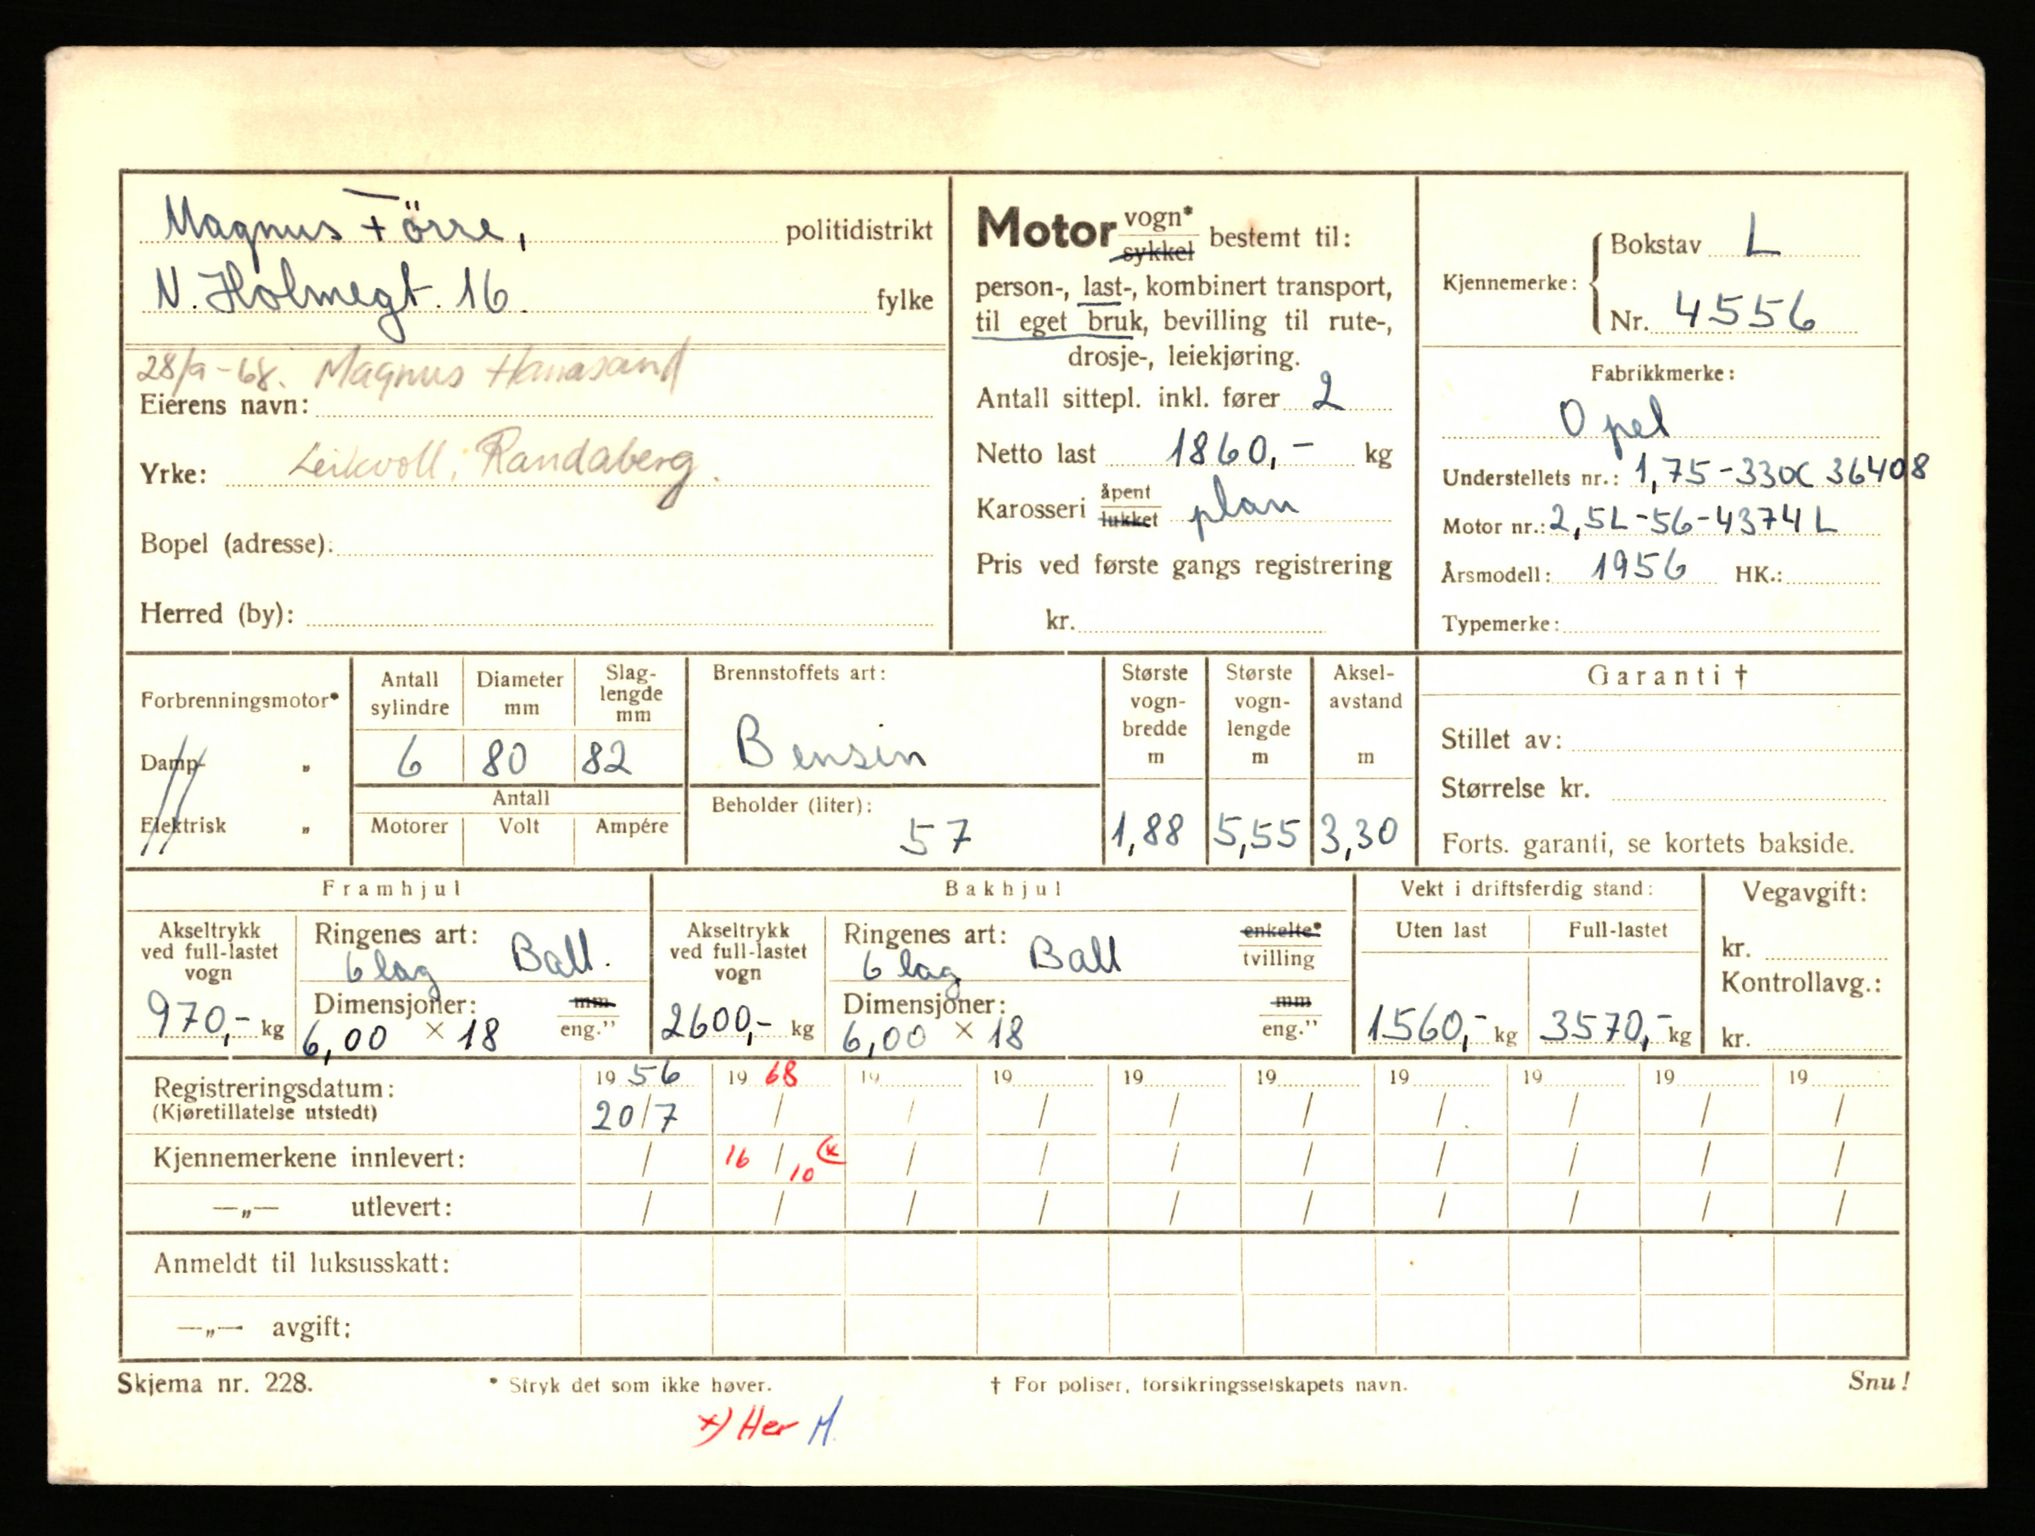 Magnus Förre, politidistrikt
N. Holmegt. 16. fylke
28/9-68. Magnus Hanasand
Eierens navn:
Leikvoll, Randaberg.
Yrke:
Bopel (adresse):
Herred (by):
Motor vogn* sykkel bestemt til:
person-, last-, kombinert transport,
til eget bruk, bevilling til rute-,
drosje-, leiekjøring.
Antall sittepl. inkl. fører 2
Netto last 1860,- kg
Karosseri åpent lukket plan
Pris ved første gangs registrering
kr.
Kjennemerke: Bokstav L
Nr. 4556
Fabrikkmerke:
Opel
Understellets nr.: 1,75-330X 36408
Motor nr.: 2,5L-56-4374L
Årsmodell: 1956 HK.:
Typemerke:
Forbrenningsmotor*
Damp- „
Elektrisk „
Antall sylindre
Diameter mm
Slag-lengde mm
6 80 82
Antall
Motorer Volt Ampére
Brennstoffets art:
Bensin
Beholder (liter):
57
Største vogn-bredde m
1,88
Største vogn-lengde m
5,55
Aksel-avstand m
3,30
Garanti †
Stillet av:
Størrelse kr.
Forts. garanti, se kortets bakside.
Framhjul
Akseltrykk ved full-lastet vogn
970,- kg
Ringenes art:
6 lag Ball.
Dimensjoner: mm
6,00 × 18 eng.”
Bakhjul
Akseltrykk ved full-lastet vogn
2600,- kg
Ringenes art: enkelte*
6 lag Ball tvilling
Dimensjoner: mm
6,00 × 18 eng.”
Vekt i driftsferdig stand:
Uten last Full-lastet
1560,- kg 3570,- kg
Vegavgift:
kr.
Kontrollavg.:
kr.
Registreringsdatum: 19 56 19 68 19 19 19 19 19 19 19 19
(Kjøretillatelse utstedt) 20/7 / / / / / / / / /
Kjennemerkene innlevert: / 16/10 (x / / / / / / / /
—„— utlevert: / / / / / / / / / /
Anmeldt til luksusskatt:
—„— avgift:
Skjema nr. 228. * Stryk det som ikke høver. † For poliser, forsikringsselskapets navn. Snu!
x) Her M.